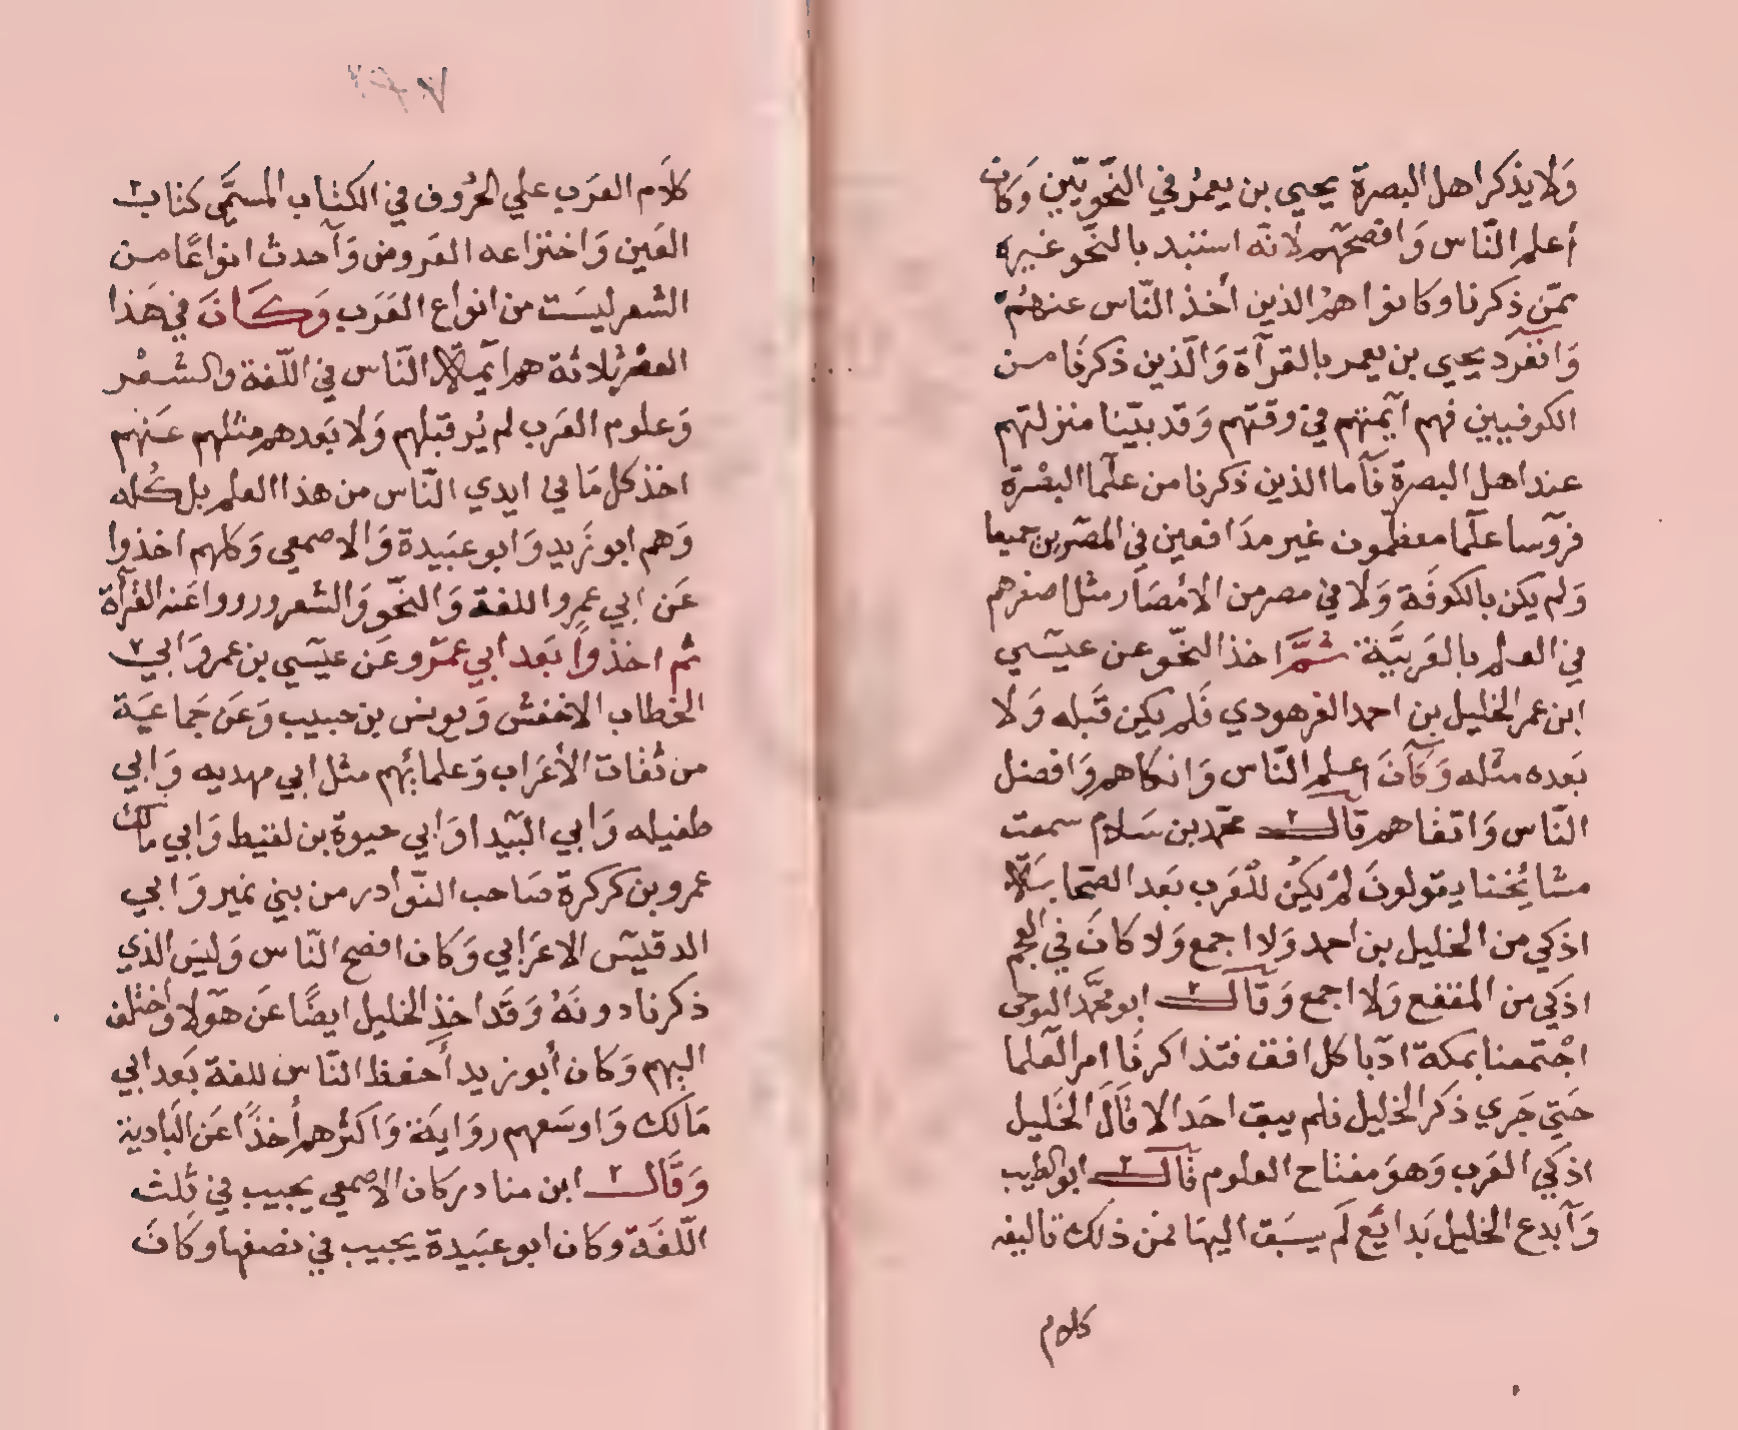 وَلا يذكر اهل البصرة يحيى بن يعمُر في النحَويّين وَكان
أعلم النّاس وَافصحهم لانّه استبد بالنحَو غيره
ممّن ذكرنا وكانوا همُ الذين أخذ النّاس عنهُم
وَانفرد يحيى بن يعمر بالقرآة وَالّذين ذكرنَا من
الكوفيين فهم آيمتهم في وقتهم وَقد بيّنا منزلتهم
عند اهل البصرة فَآما الذين ذكرنا من علمآ البصْرة
فروَسا علمآ معظمّون غير مدَافعين في المصَرين جميعا
وَلم يكن بالكوفَة وَلا في مصر من الامْصَار مثل اصغرهم
في العلم بالعَربيَّة ثمَّ اخذ النحّو عن عيسَي
ابن عمر الخليل بن احمد الفرهودي فَلم يكن قَبله وَلا
بَعده مثله وَكآنَ اعلم النّاس وَاذكاهم وَافضل
النّاس وَاتقاهم قَالَ محمّد بن سَلام سمعت
مشايُخنا يقولونَ لمْ يَكنُ للْعَرب بَعد الصّحابَة
اذكي من الخليل بن احمد وَلا اجمع وَلا كانَ في العجم
اذكي من المقفع وَلا اجمع وَقَالَ ابو محَّمد التوجي
اجْتمعنا بمكة ادّبا كل افق فتذاكرنَا امر العَلما
حَتي جَري ذكَر الخليل فلم يبق احَد الا قَالَ الخَليل
اذكَي العَرب وَهوَ مفتاح العلوم قَالَ ابو الطيب
وَآبدع الخليل بَدايَع لَم يسبَق اليهَا فمن ذلك تاليفه
كلام
كلاَم العرَب علي الحُروف في الكتاب المسمَّى كتاب
العَين وَاختزاعه العَروض وَآحدث انواعًا من
الشعر ليسَت من انواع العَرَب وَكَانَ في هَذا
العصْر ثلاثة هم ايمّة النّاس في اللّغة والشعْر
وَعلوم العَرب لم يُر قبلهم وَلا بَعدهم مثلهم عَنهم
اخذ كل مَا في ايدي النّاس من هذا العلم بل كُله
وَهم ابو زَيد وَابو عبَيدة وَالاصمعي وَكلهم اخذوا
عَن ابي عمرو اللغة وَالنحّو وَالشعر ورووا عَنه القُرآة
ثم اخذوَا بَعد ابي عمَرو عَن عيسَي بن عمر وَابي
الخطاب الاخفش وَيونس بن حبيب وَعَن جَماعَية
من ثقات الأعَراب وَعلمائهم مثل ابي مهديه وَابي
طفيله وَابي البَيدا وَابي حيوة بن لقيط وَابي مالك
عمرو بن كركرة صَاحب النّوَادر من بني نمير وَابي
الدقيسَ الاعرَابي وَكان افصح النّاس وَليسَ الذي
ذكرنا دونَهُ وَقَد اخذ الخليل ايضًا عَن هَولا وَاختلف
اليهم وَكان أبو زيد أحفظ النّاس للغة بَعد ابي
مَالك وَاوسَعهم روَايَة وَاكثرهم أخذًا عَن البَادية
وَقَالَ ابن منادر كان الاصمعي يجيب في ثلث
اللّغَة وكان ابو عبَيدة يجيب في نصفها وكَانَ